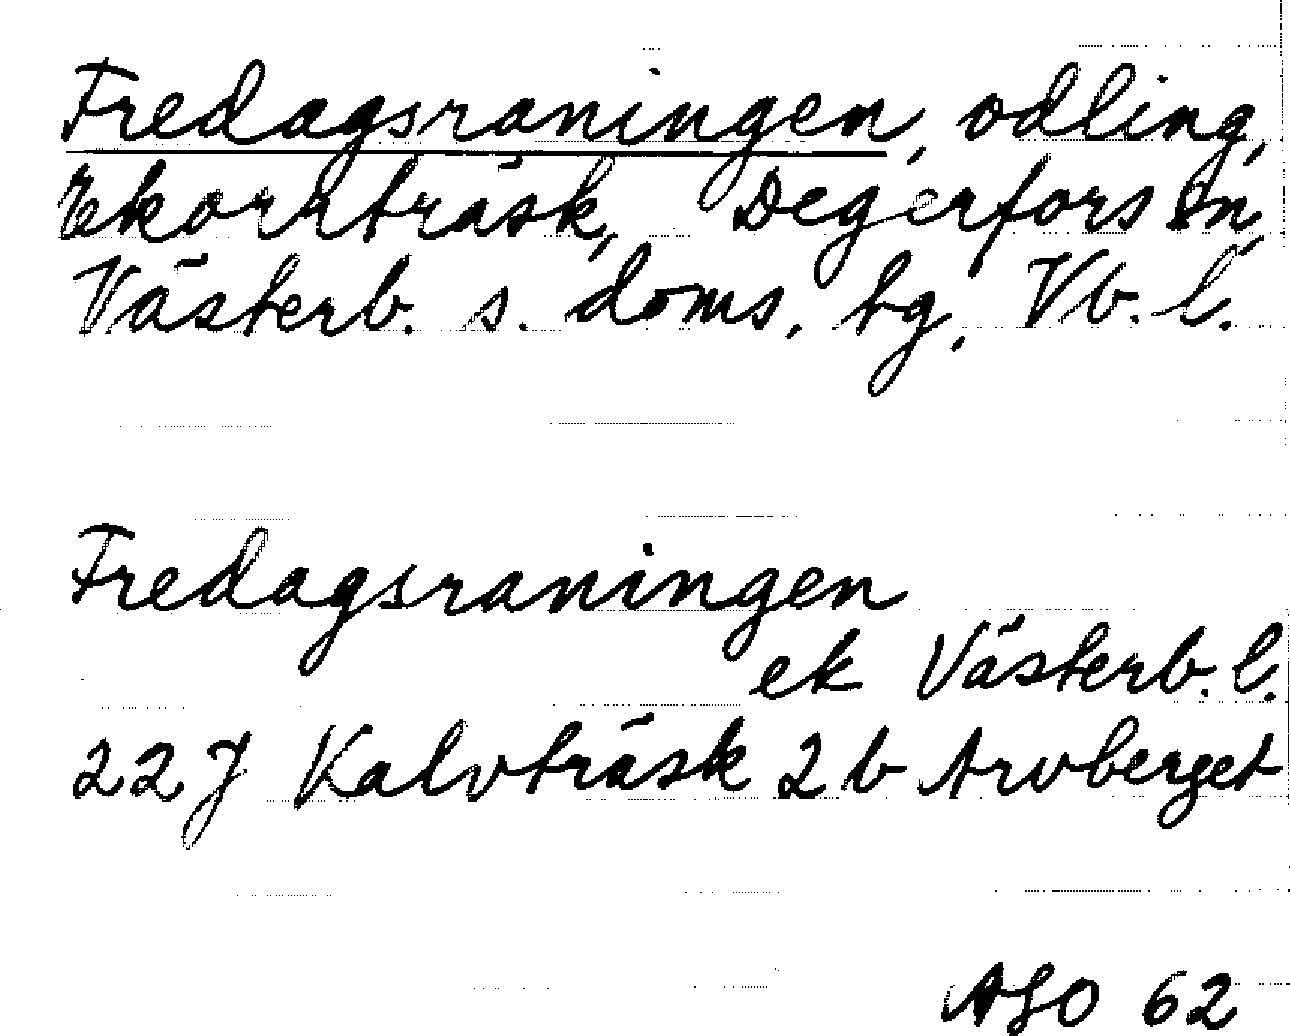 Fredagsraningen, odling,
Ekorrträsk, Degerfors sn,
Västerb. s. doms. tg, Vb. l.
Fredagsraningen
ek Västerb. l.
22 J Kalvträsk 2 b Arvberget
AGO 62